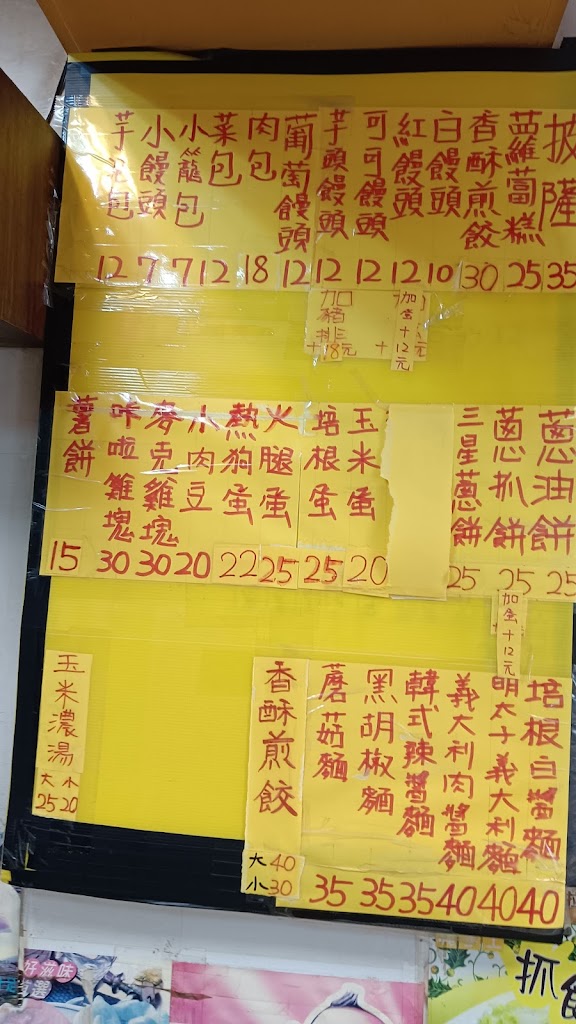 披薩 35
蘿蔔糕 25
香酥煎餃 30
白饅頭 10
紅饅頭 12
可可饅頭 12
芋頭饅頭 12
葡萄饅頭 12
肉包 18
菜包 12
小籠包 7
小饅頭 7
芋包 12
加蛋+12元
加豬排+18元
蔥油餅 25
蔥抓餅 25
三星蔥餅 25
玉米蛋 20
培根蛋 25
火腿蛋 25
熱狗蛋 22
小肉豆 20
麥克雞塊 30
咔啦雞塊 30
薯餅 15
加蛋+12元
培根白醬麵 40
明太子義大利麵 40
義大利肉醬麵 40
韓式辣醬麵 35
黑胡椒麵 35
蘑菇麵 35
香酥煎餃
大40
小30
玉米濃湯
大25
小20
好滋味
選
抓